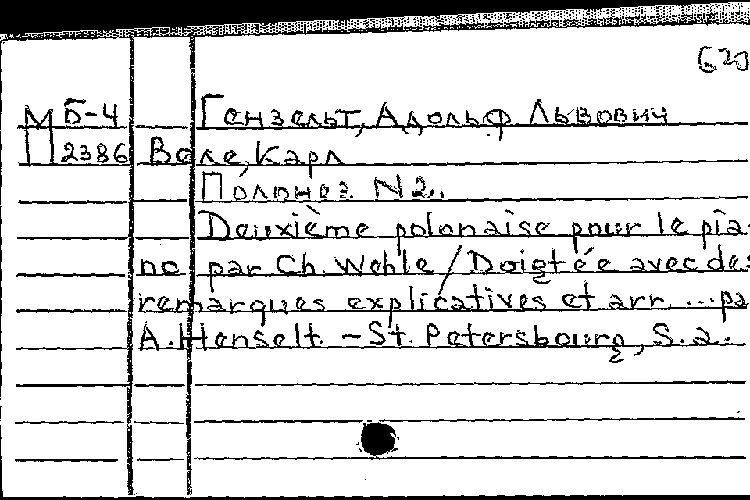 620
М Б-4 Гензельт, Адольф Львович
П 2386 Веле, Карл
Полонез N2.
Deuxième polonaise pour le pia-
no par Ch. Wehle / Doigtée avec des
remarques explicatives et arr. ... pa
A. Henselt. - St. Petersbourg, S. a.